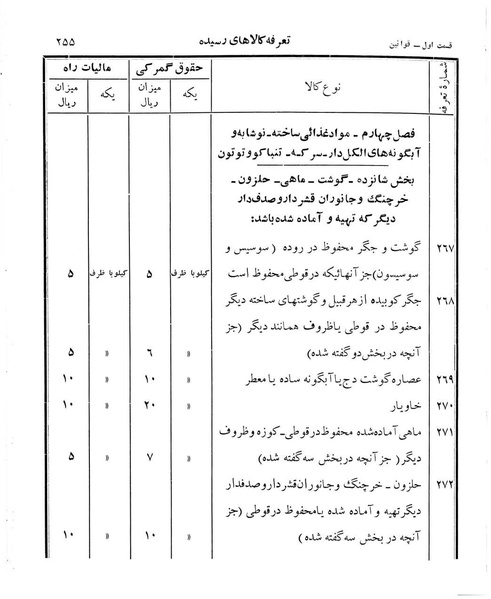 قسمت اول – قوانین
تعرفه کالاهای رسیده
۲۵۵
شمارهٔ تعرفه
نوع کالا
حقوق گمرکی
مالیات راه
یکه
میزان ریال
یکه
میزان ریال
فصل چهارم – مواد غذائی ساخته – نوشابه و
آبگونه‌های الکل‌دار – سرکه – تنباکو و توتون
بخش شانزده – گوشت – ماهی – حلزون –
خرچنگ و جانوران قشردار و صدف‌دار
دیگر که تهیه و آماده شده باشد:
۲۶۷ گوشت و جگر محفوظ در روده (سوسیس و
سوسیسون) جز آنهائیکه در قوطی محفوظ است کیلو با ظرف ۵ کیلو با ظرف ۵
۲۶۸ جگر کوبیده از هر قبیل و گوشتهای ساخته دیگر
محفوظ در قوطی یا ظروف همانند دیگر (جز
آنچه در بخش دو گفته شده) » ۶ » ۵
۲۶۹ عصاره گوشت دج یا آبگونه ساده یا معطر » ۱۰ » ۱۰
۲۷۰ خاویار » ۲۰ » ۱۰
۲۷۱ ماهی آماده شده محفوظ در قوطی – کوزه و ظروف
دیگر (جز آنچه در بخش سه گفته شده) » ۷ » ۵
۲۷۲ حلزون – خرچنگ و جانوران قشردار و صدفدار
دیگر تهیه و آماده شده یا محفوظ در قوطی (جز
آنچه در بخش سه گفته شده) » ۱۰ » ۱۰